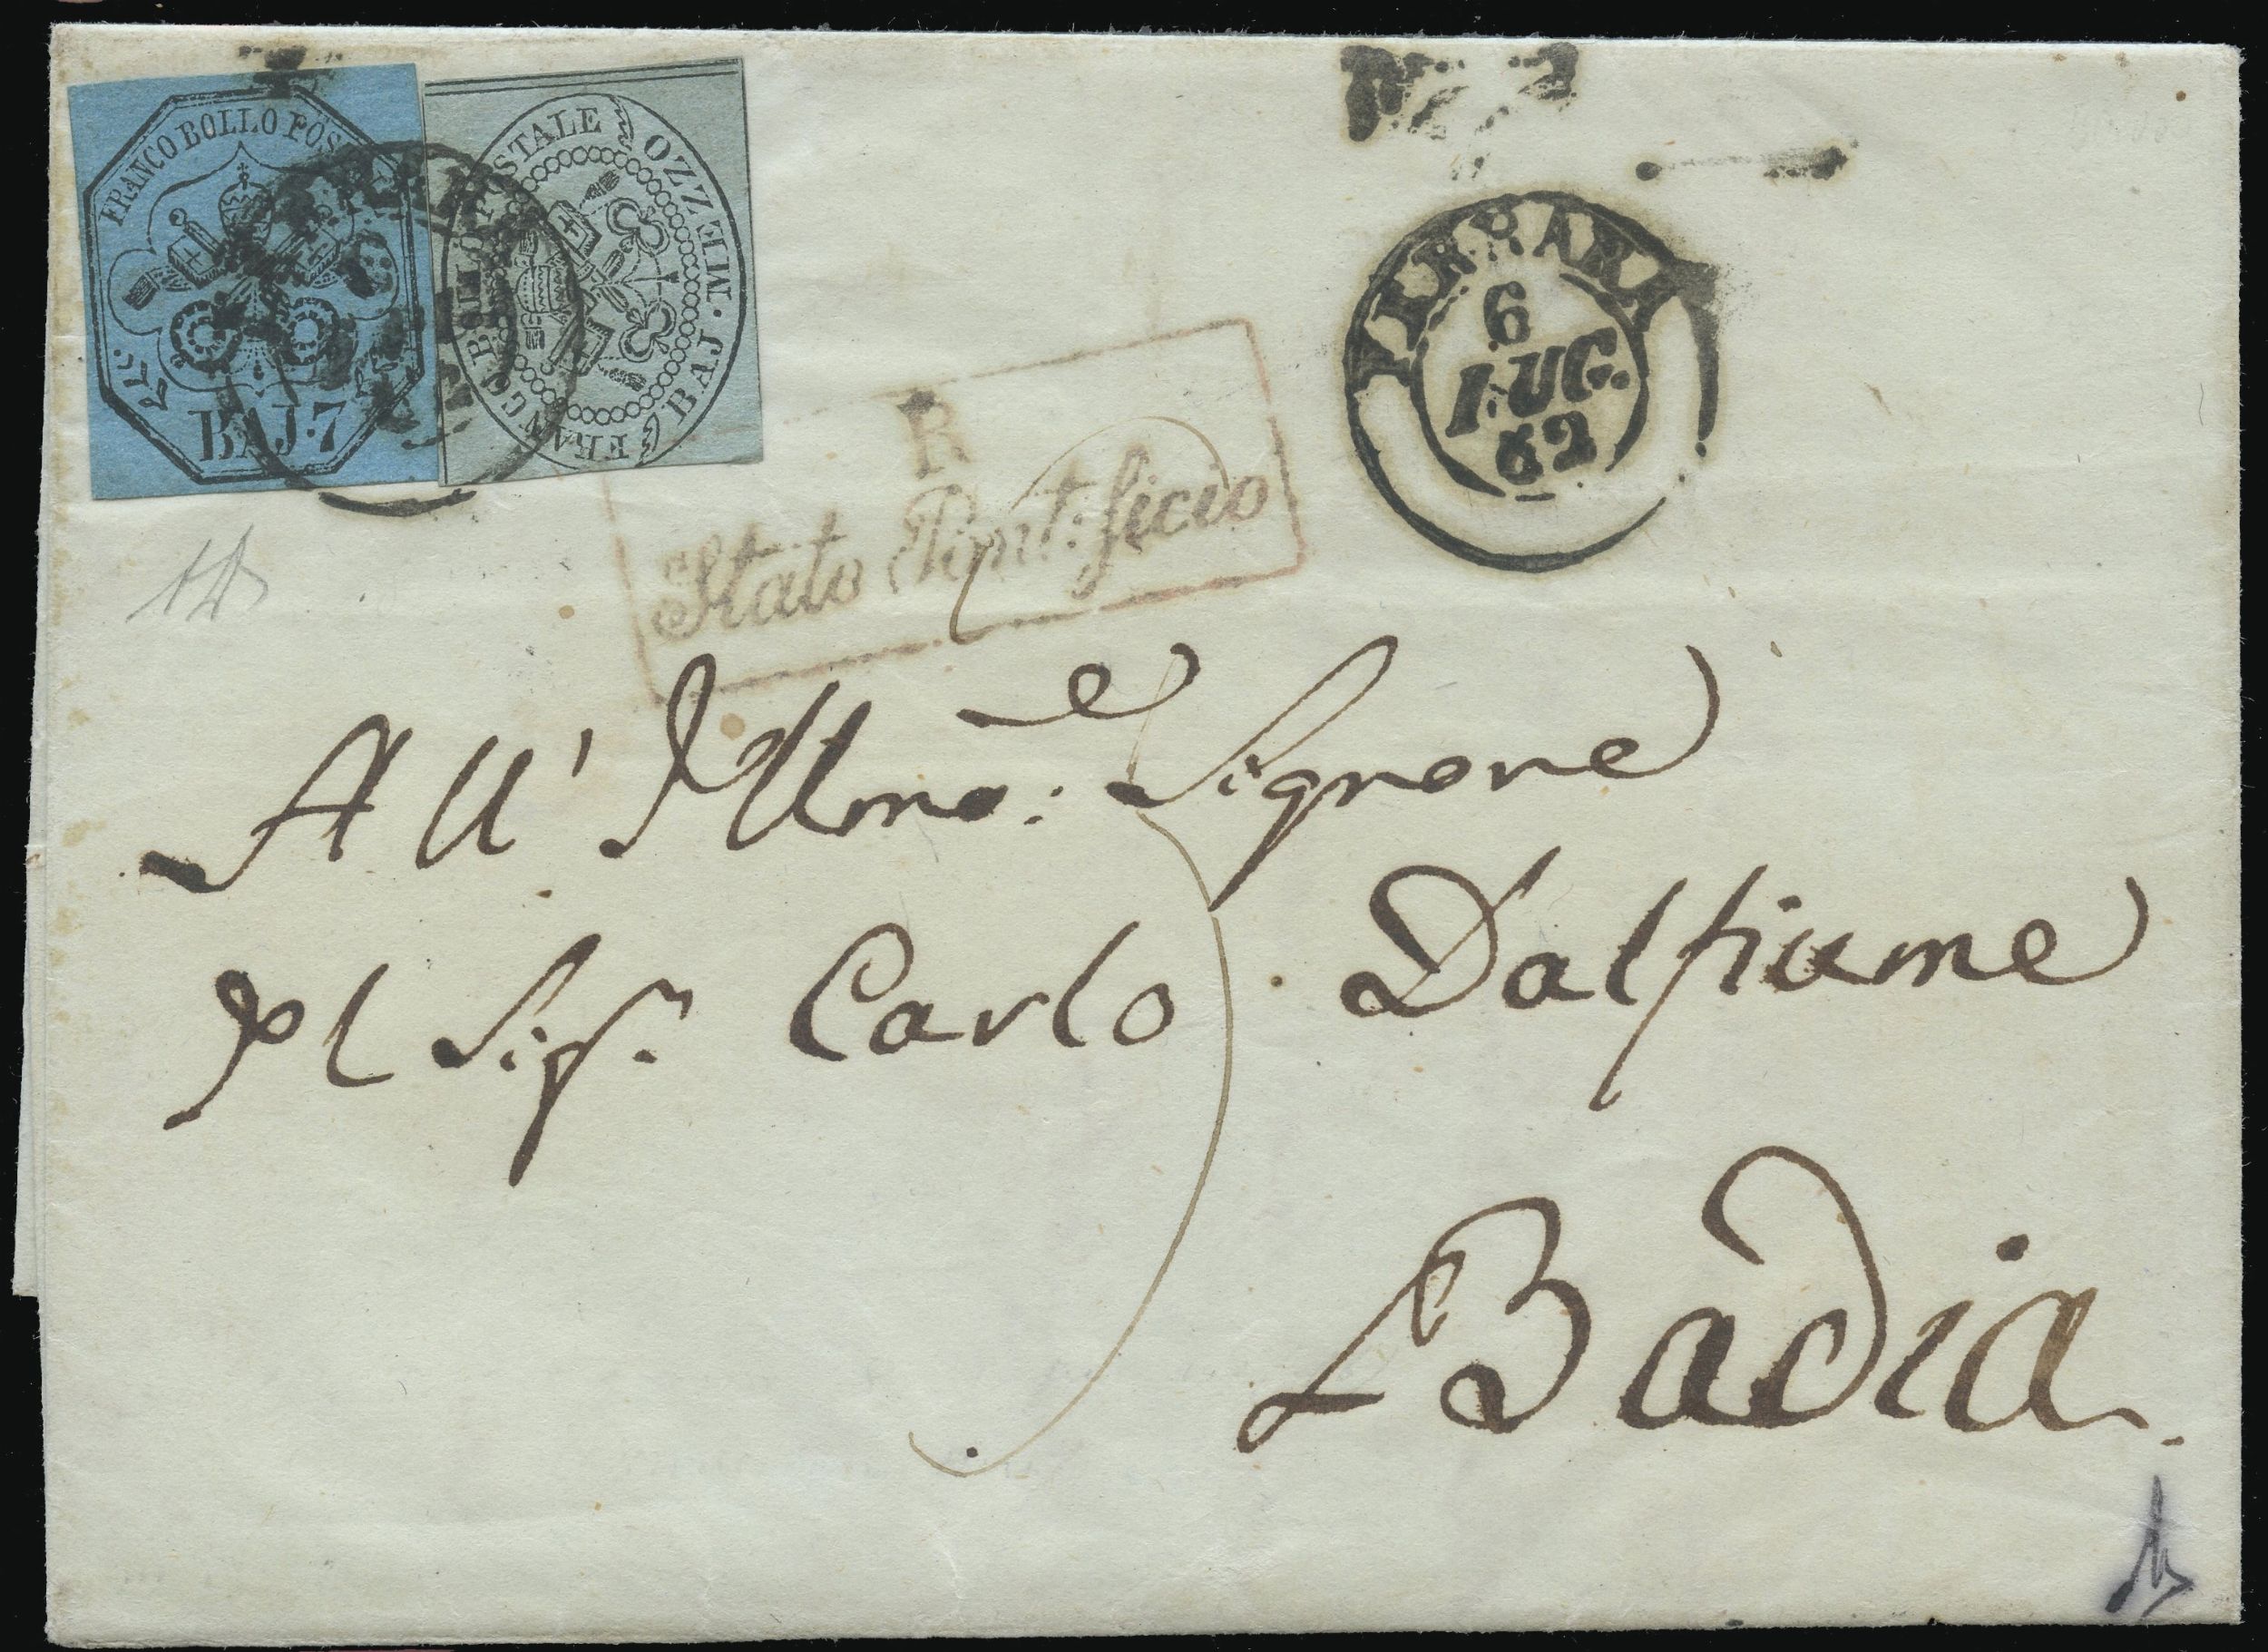 FRANCO BOLLO POS
BAJ. 7
FRANCO BOLLO POSTALE
MEZZO BAJ.
FERRARA
6
LUG.
52
R
Stato Pont:ficio
All' Illmo: Signore
Il Sigr. Carlo Dalfiume
Badia.